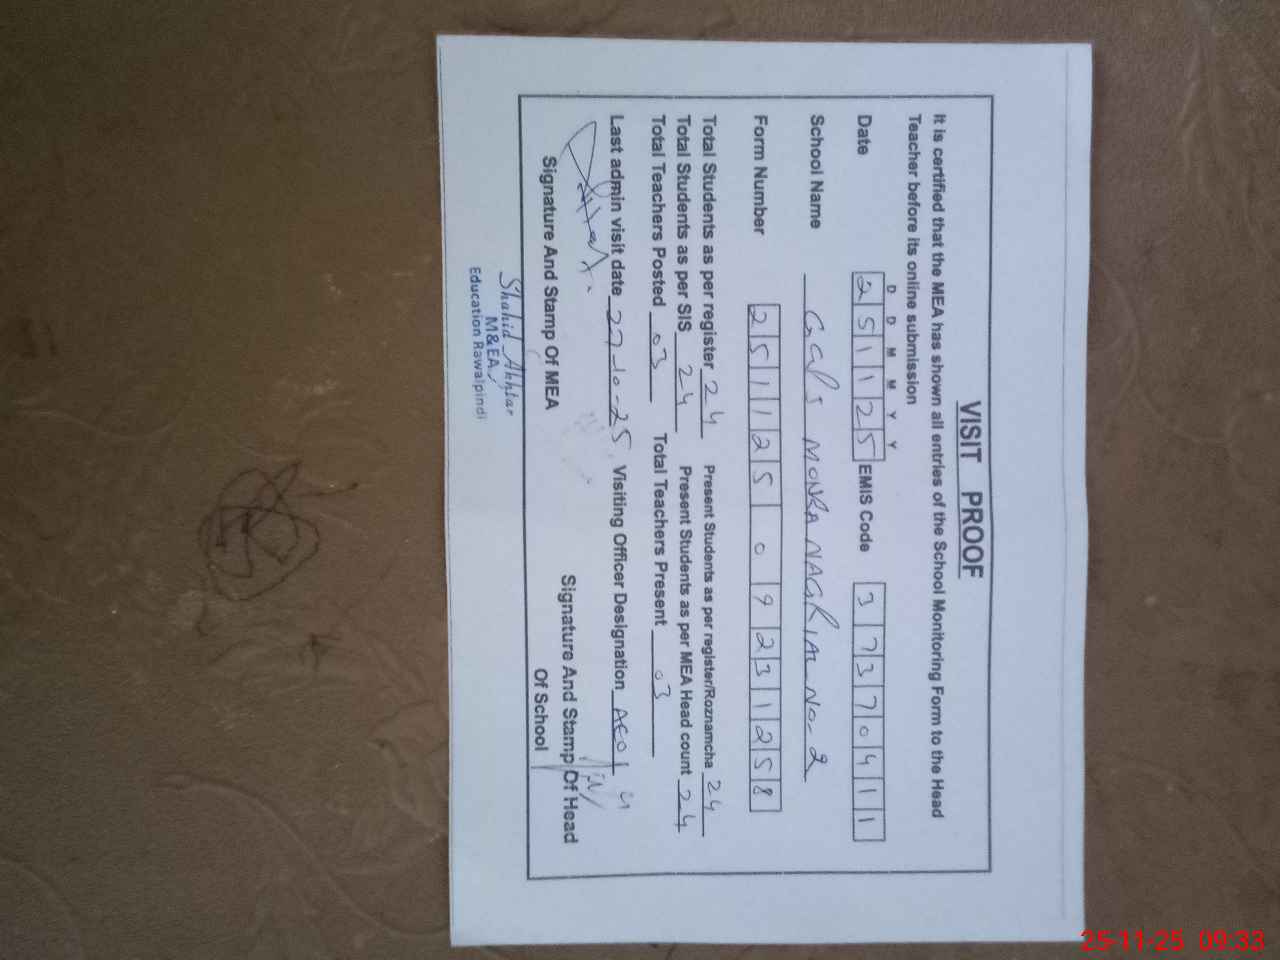 VISIT PROOF
It is certified that the MEA has shown all entries of the School Monitoring Form to the Head
Teacher before its online submission
D D M M Y Y
Date 2 5 1 1 2 5 EMIS Code 3 7 3 7 0 4 1 1
School Name GGPS MONRA NAGRIAL NO-2
Form Number 2 5 1 1 2 5 0 9 2 3 1 2 5 8
Total Students as per register 24 Present Students as per register/Roznamcha 24
Total Students as per SIS 24 Present Students as per MEA Head count 24
Total Teachers Posted 03 Total Teachers Present 03
Last admin visit date 27-10-25 Visiting Officer Designation AEO
Signature And Stamp Of MEA
Signature And Stamp Of Head
Of School
Shahid Akhtar
M&EA
Education Rawalpindi
25-11-25 09:33